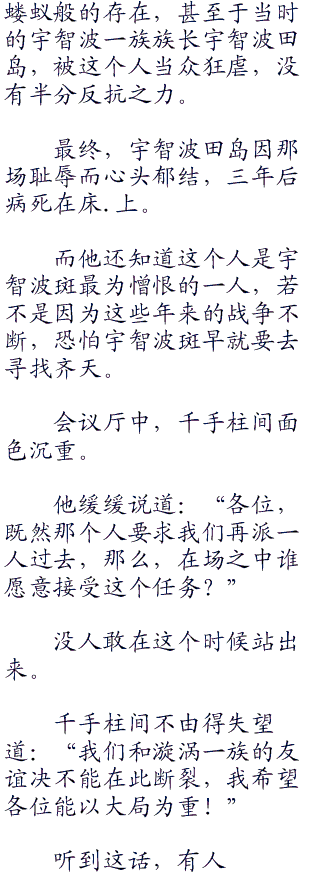 蝼蚁般的存在，甚至于当时
的宇智波一族族长宇智波田
岛，被这个人当众狂虐，没
有半分反抗之力。
最终，宇智波田岛因那
场耻辱而心头郁结，三年后
病死在床.上。
而他还知道这个人是宇
智波斑最为憎恨的一人，若
不是因为这些年来的战争不
断，恐怕宇智波斑早就要去
寻找齐天。
会议厅中，千手柱间面
色沉重。
他缓缓说道：“各位，
既然那个人要求我们再派一
人过去，那么，在场之中谁
愿意接受这个任务？”
没人敢在这个时候站出
来。
千手柱间不由得失望
道：“我们和漩涡一族的友
谊决不能在此断裂，我希望
各位能以大局为重！”
听到这话，有人